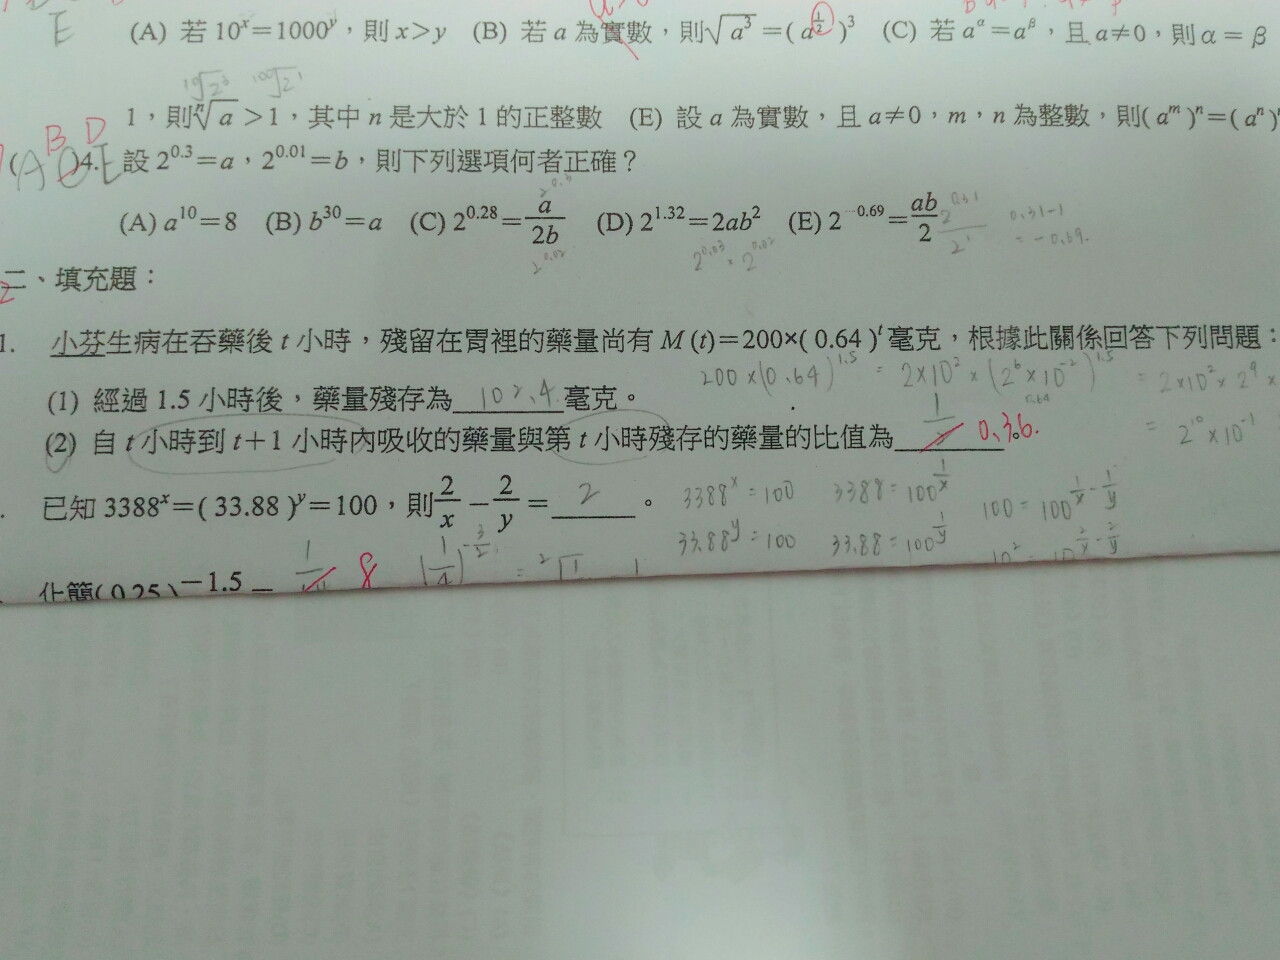 E (A) 若 10^x=1000^y，則 x>y (B) 若 a 為實數，則√a³ =( a^½ )³ (C) 若 a^α=a^β，且 a≠0，則 α = β
1，則ⁿ√a >1，其中 n 是大於 1 的正整數 (E) 設 a 為實數，且 a≠0，m，n 為整數，則( a^m )^n=( a^n )
B D
( A C )4. E 設 2^0.3=a，2^0.01=b，則下列選項何者正確？
(A) a^10=8 (B) b^30=a (C) 2^0.28=a/2b (D) 2^1.32=2ab² (E) 2^-0.69=ab/2 2^0.31/2^1 0.31-1 = -0.69.
2^0.3 2^0.02 2^0.03 · 2^0.02
二、填充題：
1. 小芬生病在吞藥後 t 小時，殘留在胃裡的藥量尚有 M (t)=200×( 0.64 )^t 毫克，根據此關係回答下列問題：
200 ×(0.64)^1.5 = 2×10² × (2^6 ×10^-2)^1.5 = 2×10² × 2^9 ×
(1) 經過 1.5 小時後，藥量殘存為 102.4 毫克。 0.64
(2) 自 t 小時到 t+1 小時內吸收的藥量與第 t 小時殘存的藥量的比值為 0.36。 = 2^10 ×10^-1
. 已知 3388^x=( 33.88 )^y=100，則2/x − 2/y = 2 。 3388^x = 100 3388 = 100^1/x 100 = 100^1/x - 1/y
33.88^y = 100 33.88 = 100^1/y 10² = 10^2/x - 2/y
. 化簡( 0.25 )^−1.5 = 8 (1/4)^-3/2 =